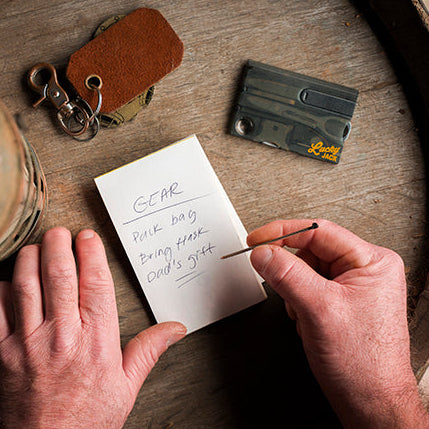 Lucky
JACK
GEAR
Pack bag
Bring flask
Dad's gift